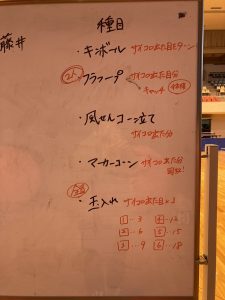 種目
藤井
・キンボール サイコロ出た目ターン
2人 フラフープ サイコロ出た目分
キャッチ
・風せんコーン立て
サイコロ出た分
・マーカーコーン サイコロ出た分
全員
・玉入れ サイコロ出た目×3
1…3 4…12
2…6 5…15
3…9 6…18